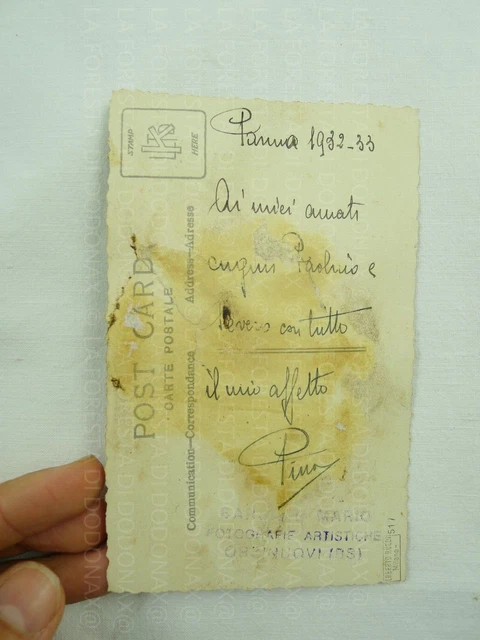 Parma 1932-33
Ai miei amati
cugini Paolino e
con tutto
il mio affetto
Pina
STAMP HERE
POST CARD
CARTE POSTALE
Communication-Correspondance Address-Adresse
MARIO
FOTOGRAFIE ARTISTICHE
ORZINUOVI (BS)